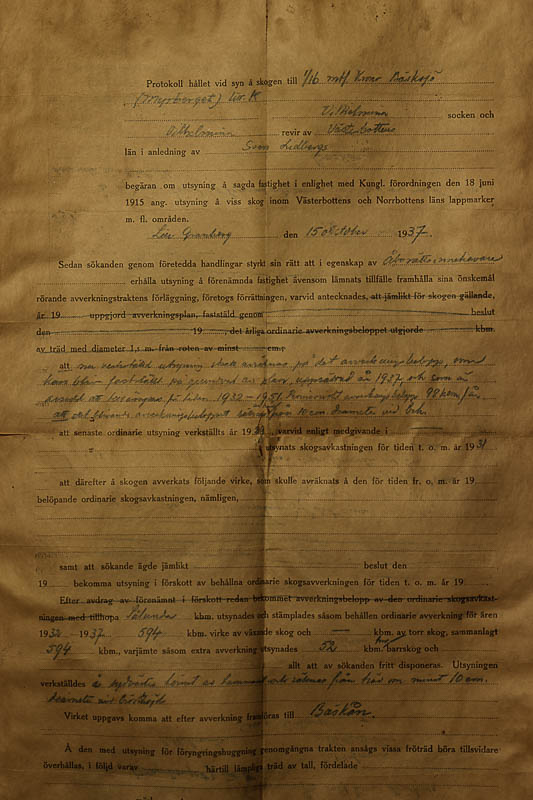 Protokoll hållet vid syn å skogen till 1/16 mtl Krono Bäsksjö
(Myrberget) litt. K
Vilhelmina socken och
Vilhelmina revir av Västerbottens
län i anledning av Sven Lidbergs
begäran om utsyning å sagda fastighet i enlighet med Kungl. förordningen den 18 juni
1915 ang. utsyning å viss skog inom Västerbottens och Norrbottens läns lappmarker
m. fl. områden.
Granberg den 15 oktober 1937.
Sedan sökanden genom företedda handlingar styrkt sin rätt att i egenskap av Åborättsinnehavare
erhålla utsyning å förenämnda fastighet ävensom lämnats tillfälle framhålla sina önskemål
rörande avverkningstraktens förläggning, företogs förrättningen, varvid antecknades, att jämlikt för skogen gällande,
år 19 uppgjord avverkningsplan, fastställd genom beslut
den 19 , det årliga ordinarie avverkningsbeloppet utgjorde kbm.
av träd med diameter 1,3 m. från roten av minst cm.;
att nu verkställd utsyning skall avräknas på det avverkningsbelopp, som
fastställt på grundval av plan, upprättad år 1937, och som är
avsedd att tillämpas på tiden 1932–1951. avverkningsbelopp 98 kbm/år
att det från 10 cm diameter vid brh.
att senaste ordinarie utsyning verkställts år 19 , varvid enligt medgivande i
utsynats skogsavkastningen för tiden t. o. m. år 1931
att därefter å skogen avverkats följande virke, som skulle avräknats å den för tiden fr. o. m. år 19
belöpande ordinarie skogsavkastningen, nämligen,
samt att sökande ägde jämlikt beslut den
19 bekomma utsyning i förskott av behållna ordinarie skogsavverkningen för tiden t. o. m. år 19
Efter avdrag av förenämnt i förskott redan bekommet avverkningsbelopp av den ordinarie skogsavkast-
ningen med tillhopa kbm. utsynades och stämplades såsom behållen ordinarie avverkning för åren
1932 - 1937 594 kbm. virke av växande skog och — kbm. av torr skog, sammanlagt
594 kbm., varjämte såsom extra avverkning utsynades 52 kbm. barrskog och
allt att av sökanden fritt disponeras. Utsyningen
verkställdes å av och räknas från träd om minst 10 cm.
diameter vid brösthöjd.
Virket uppgavs komma att efter avverkning framföras till Baskån.
Å den med utsyning för föryngringshuggning genomgångna trakten ansågs vissa fröträd böra tillsvidare
överhållas, i följd varav härtill lämpliga träd av tall, fördelade